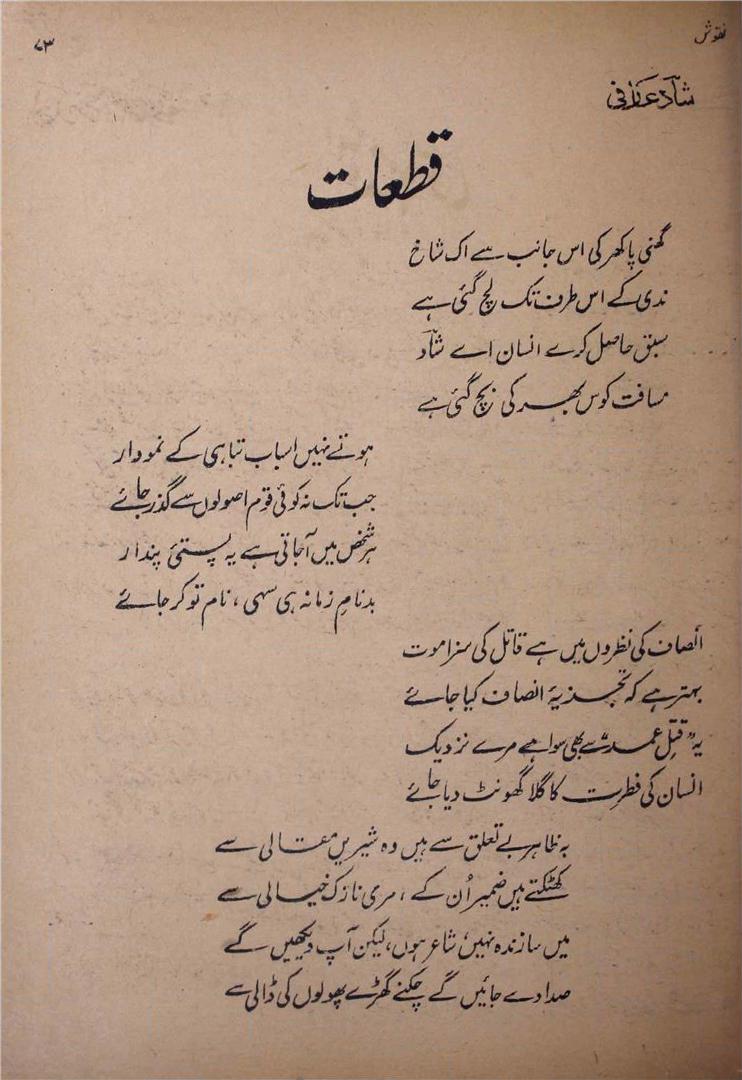 نقوش
۷۳
شاد عارفی
قطعات
گھنی پاکھر کی اس جانب سے اک شاخ
ندی کے اس طرف تک لچ گئی ہے
سبق حاصل کرے انسان اے شاد
مسافت کوس بھر کی بچ گئی ہے
ہوتے نہیں اسباب تباہی کے نمودار
جب تک نہ کوئی قوم اصولوں سے گذر جائے
ہر شخص میں آجاتی ہے یہ پستیٔ پندار
بدنامِ زمانہ ہی سہی، نام تو کر جائے
انصاف کی نظروں میں ہے قاتل کی سزا موت
بہتر ہے کہ تجزیۂ انصاف کیا جائے
یہ "قتلِ عمد" سے بھی سوا ہے مرے نزدیک
انسان کی فطرت کا گلا گھونٹ دیا جائے
بہ ظاہر بے تعلق سے ہیں وہ شیریں مقالی سے
کھٹکتے ہیں ضمیر اُن کے، مری نازک خیالی سے
میں سازندہ نہیں، شاعر ہوں، لیکن آپ دیکھیں گے
صدا دے جائیں گے چکنے گھڑے پھولوں کی ڈالی سے